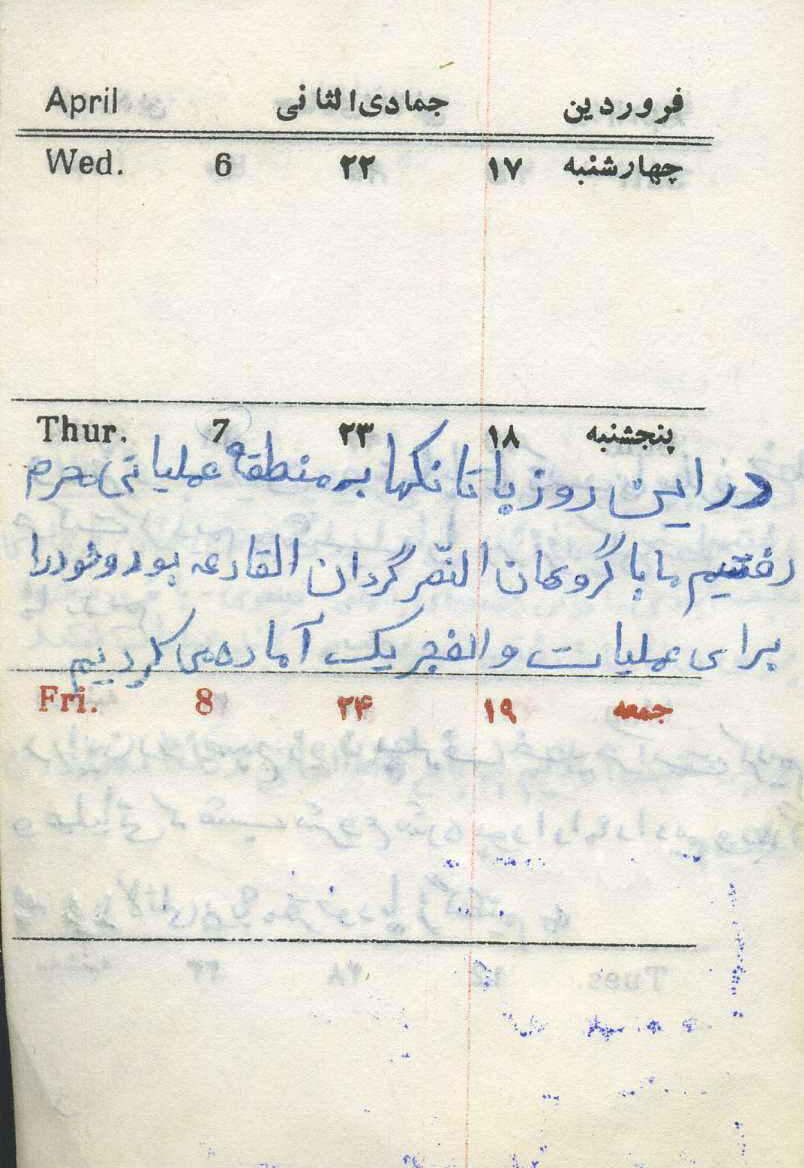 April جمادی‌الثانی فروردین
Wed. 6 ۲۲ ۱۷ چهارشنبه
Thur. 7 ۲۳ ۱۸ پنجشنبه
در این روز با تانکها به منطقه عملیاتی محرم
رفتیم ما با گروهان النصر گردان القارعه بود و خود را
برای عملیات والفجر یک آماده می کردیم
Fri. 8 ۲۴ ۱۹ جمعه